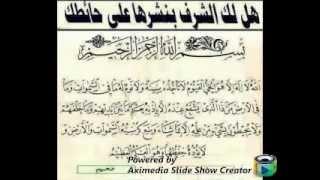 هل لك الشرف بنشرها على حائطك
بسم الله الرحمن الرحيم
الله لا إله إلا هو الحي القيوم لا تأخذه سنة ولا نوم له ما في السموات وما
في الأرض من ذا الذي يشفع عنده إلا بإذنه يعلم ما بين أيديهم وما خلفهم
ولا يحيطون بشيء من علمه إلا بما شاء وسع كرسيه السموات والأرض و
لا يؤده حفظهما وهو العلي العظيم
Powered by
Aximedia Slide Show Creator